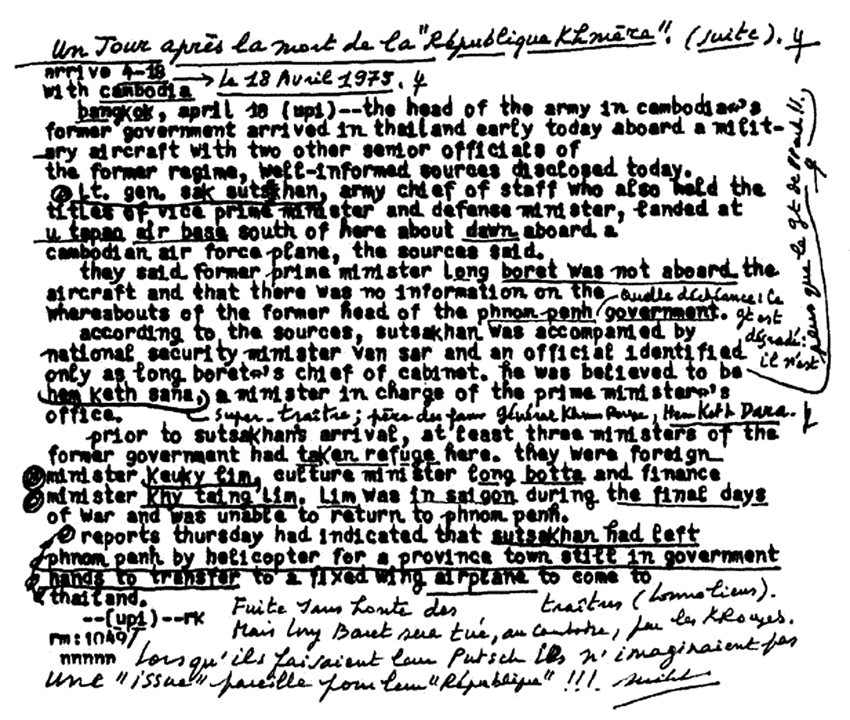 Un Jour après la mort de la "République Khmère". (suite).
arrive 4-18 → Le 18 Avril 1975.
with cambodia
bangkok, april 18 (upi)--the head of the army in cambodia's
former government arrived in thailand early today aboard a milit-
ary aircraft with two other senior officials of
the former regime, well-informed sources disclosed today.
lt. gen. sak sutsakhan, army chief of staff who also held the
titles of vice prime minister and defense minister, landed at
u tapao air base south of here about dawn aboard a
cambodian air force plane, the sources said.
they said former prime minister long boret was not aboard the
aircraft and that there was no information on the
whereabouts of the former head of the phnom penh government.
Quelle déchéance: Le gt est dégradé: il n'est plus que le gt de Pnom Penh!!.
according to the sources, sutsakhan was accompanied by
national security minister van sar and an official identified
only as long boret's chief of cabinet. he was believed to be
hem keth sana, a minister in charge of the prime minister's
office.
Super-traître; père du faux général Khmer Rouge, Hem Keth Dara.
prior to sutsakhan's arrival, at least three ministers of the
former government had taken refuge here. they were foreign
minister keuky lim, culture minister long botta and finance
minister khy taing lim. lim was in saigon during the final days
of war and was unable to return to phnom penh.
reports thursday had indicated that sutsakhan had left
phnom penh by helicopter for a province town still in government
hands to transfer to a fixed wing airplane to come to
thailand.
--(upi)--rk
rm:1049/
nnnnn
Fuite sans honte des traîtres (Lonnoliens).
Mais Long Boret sera tué, au contraire, par les KRouges.
Lorsqu'ils faisaient leur Putsch ils n'imaginaient pas
une "issue" pareille pour leur "République" !!!. suite